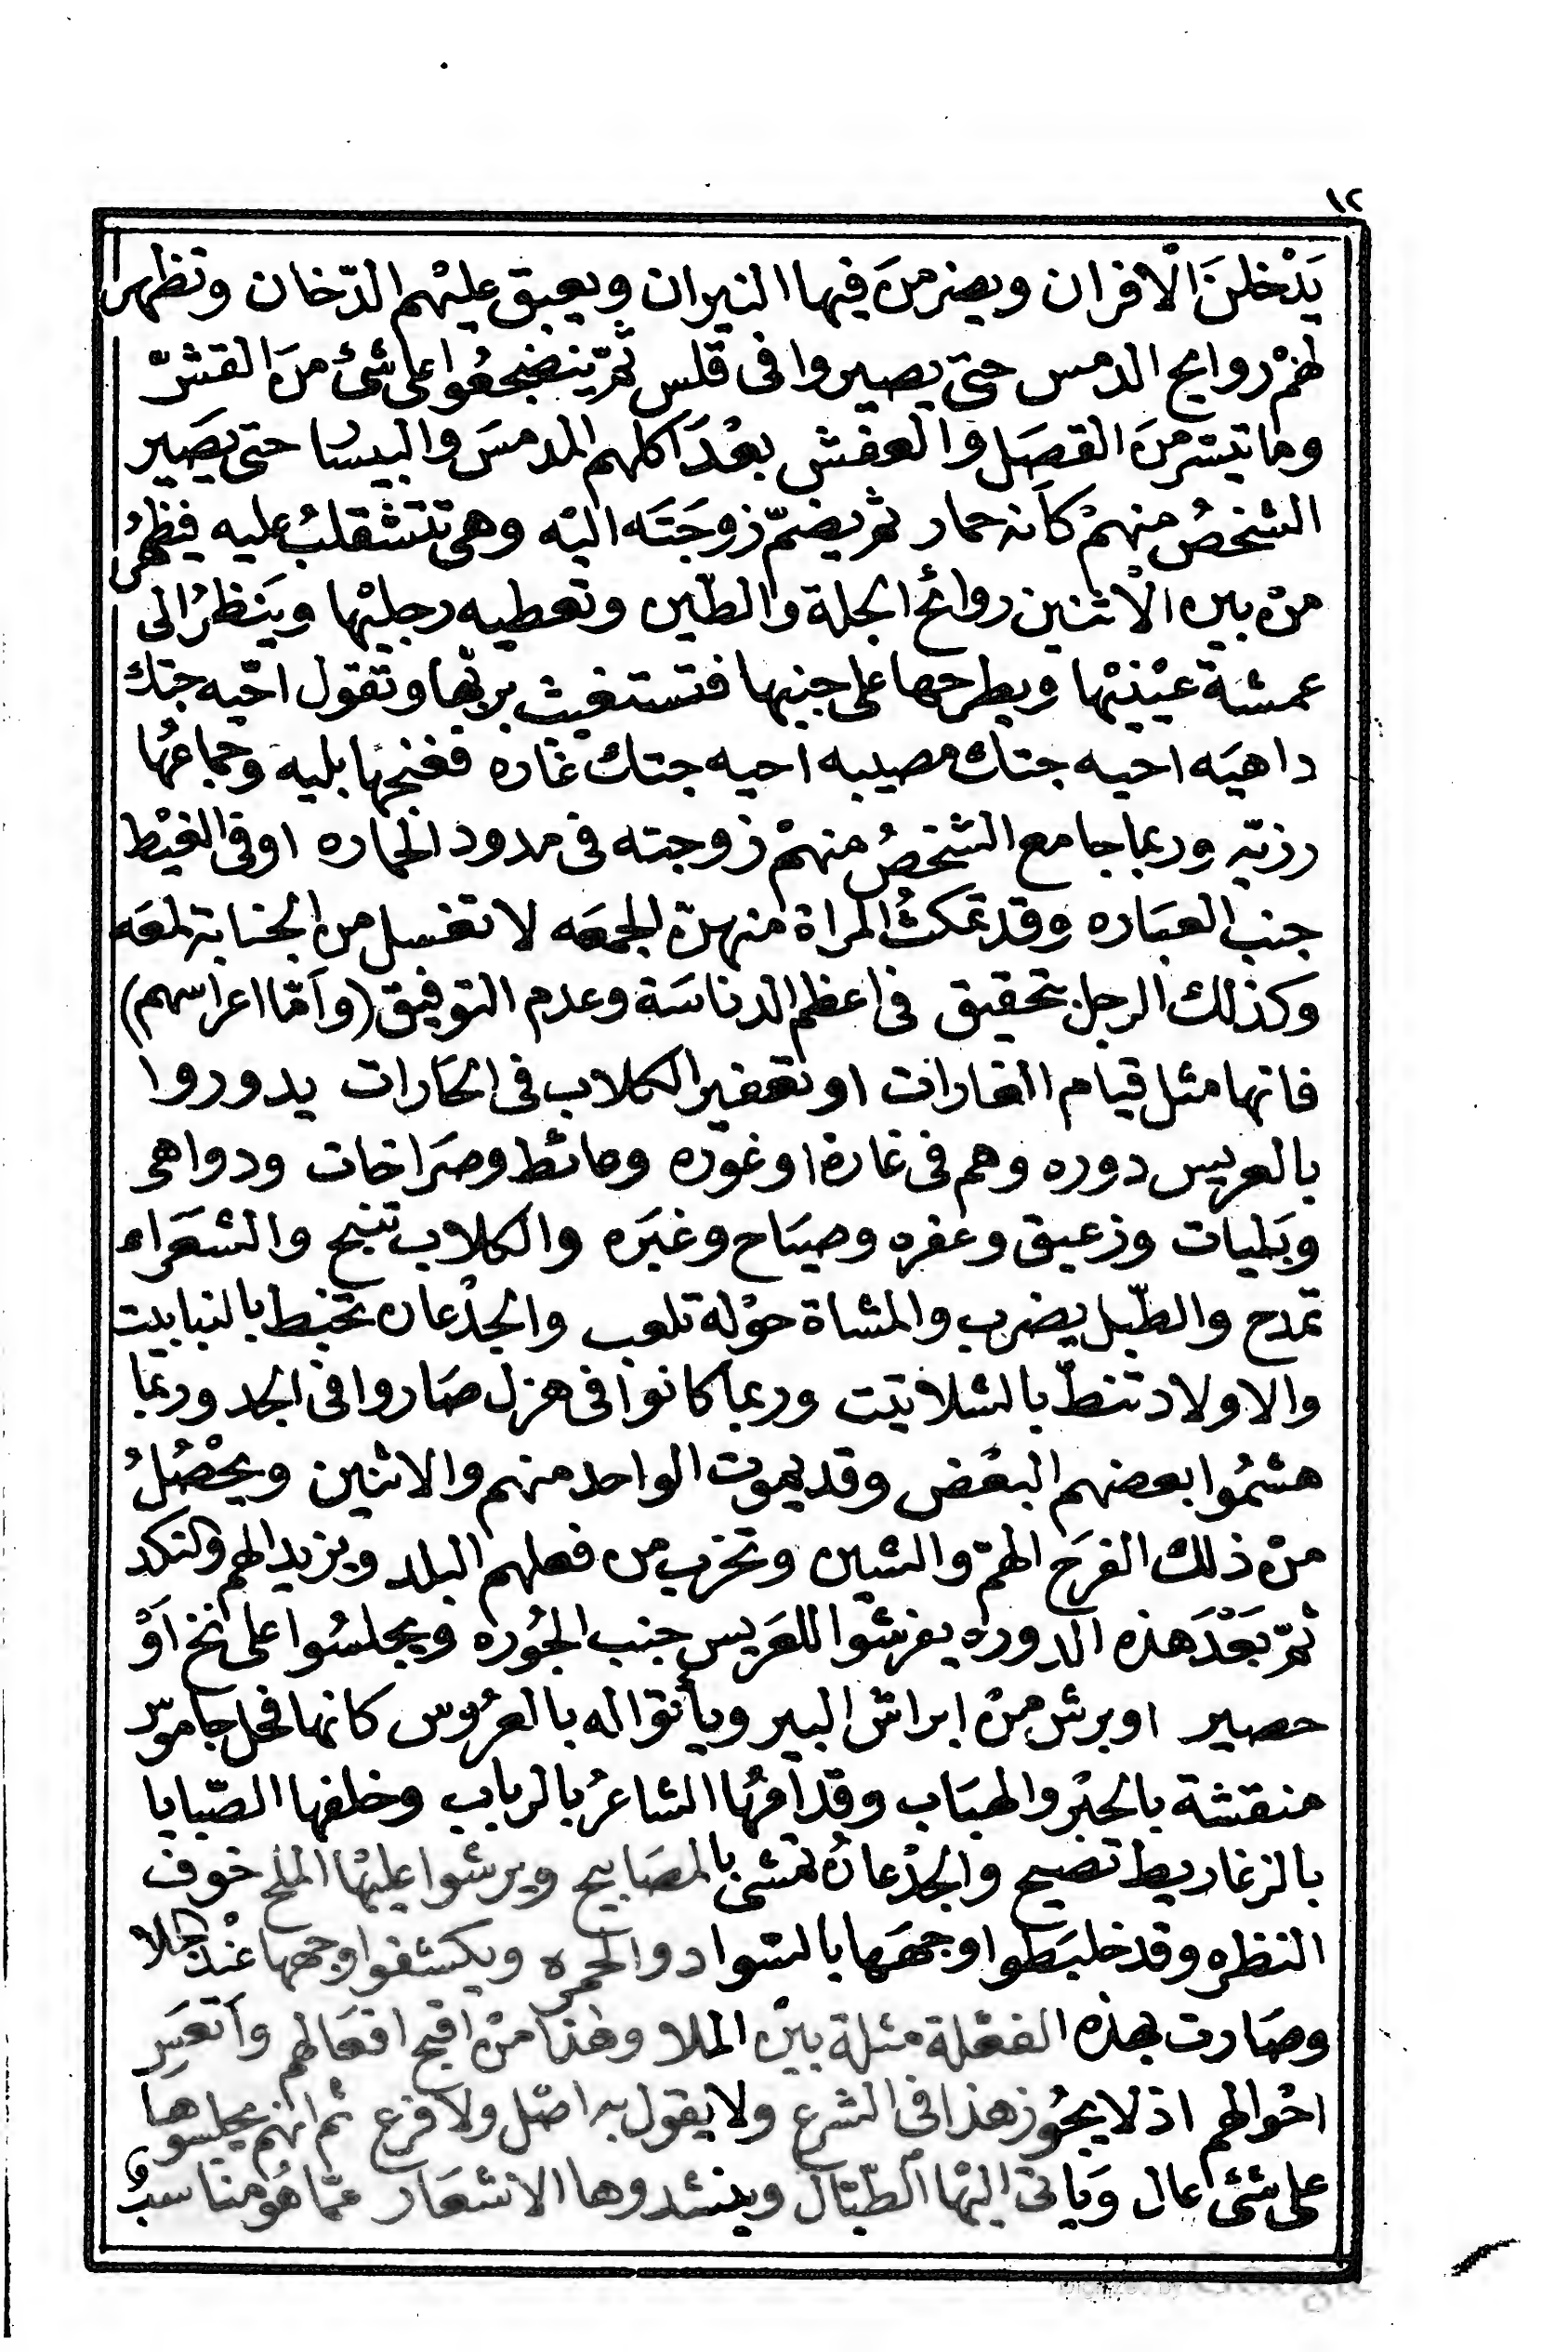 ١٢
يَدْخلنَ الْافران ويضرمنَ فيها النيران ويعبق عليْهم الدّخان وتظهر
لهمْ روايح الدمس حتى يصيروا فى قلس ثمّ ينضجعُوا على شئ منَ القشّ
وما تيسّر منَ القصَل والعفش بعْدَ اكلهم المدمسَ والبيسار حتى يصَير
الشخصُ منهمْ كأنه حمار ثم يضمّ زوجَتَه اليْه وهى تتشقلبُ عليه فيظهرُ
منْ بين الْاثنين روائح الجلة والطّين وتعطيه رجليْها وينَظرُ الى
عمشة عيْنيْها ويطرحها على جنبها فتستغيث بربّها وتقول احّيه جتك
داهيَه احيه جتك مصيبه احيه جتك غاره فغنجها بليه وجماعهُا
رزيّه وربما جامع الشخصُ منهمْ زوجته فى مدود الحماره او فى الغيْط
جنب العبَاره وقد تمكثُ المراة منهنّ الجمعَه لا تغسل من الجنابة لمعَه
وكذلك الرجل بتحقيق فى اعظم الدناسَة وعدم التوفيق (وأمّا اعراسهم)
فانها مثل قيام الغارات او تعفير الكلاب فى الحَارات يدوروا
بالعريس دوره وهم فى غارة او غوره وعائط وصرَاخات ودواهى
وبَليات وزعيق وعفره وصيَاح وغبَره والكلاب تنبح والشعَراء
تمدح والطّبل يضرب والمشاة حوْله تلعب والجدْعان تخبط بالنبابيت
والاولاد تنطّ بالشلاتيت وربما كانوا فى هزل صَاروا فى الجد وربمَا
هشمُوا بعضهم البعْض وقد يموت الواحد منهم والاثنين ويحْصُلُ
منْ ذلك الفرَح الهمّ والشين وتخرب من فعلهم البلد ويزيد الهم والنكد
ثمّ بعَدَ هذه الدوره يفرشوا للعَريس جنب الجُوره ويجلسُوا على نخ اَوْ
حصير او برش منْ ابراش البير ويأتوا له بالعرُوس كانها فحل جاموس
منقشة بالحبْر والهبَاب وقد أمَّها الشاعرُ بالرباب وخلفها الصّبايا
بالزغاريط تصيح والجدْعانُ تمشى بالمصَابيح ويرشوا عليْها الملح خوف
النظره وقد خلبَطوا وجهَها بالسّواد والحمره ويكشفوا وجهها عنْد الجلا
وصَارت بهذه الفعْلة مثلة بيْن الملا وهذا منْ اقبح افعَالهم وأتعسَ
احْوالهم اذ لا يجُوز هذا فى الشرع ولا يقول به اصْل ولا فرْع ثم انهم يجلسوها
على شئ عال وَياتى اليْها الطبّال وينشدوها الاشعَار ممّا هُو مناسبٌ